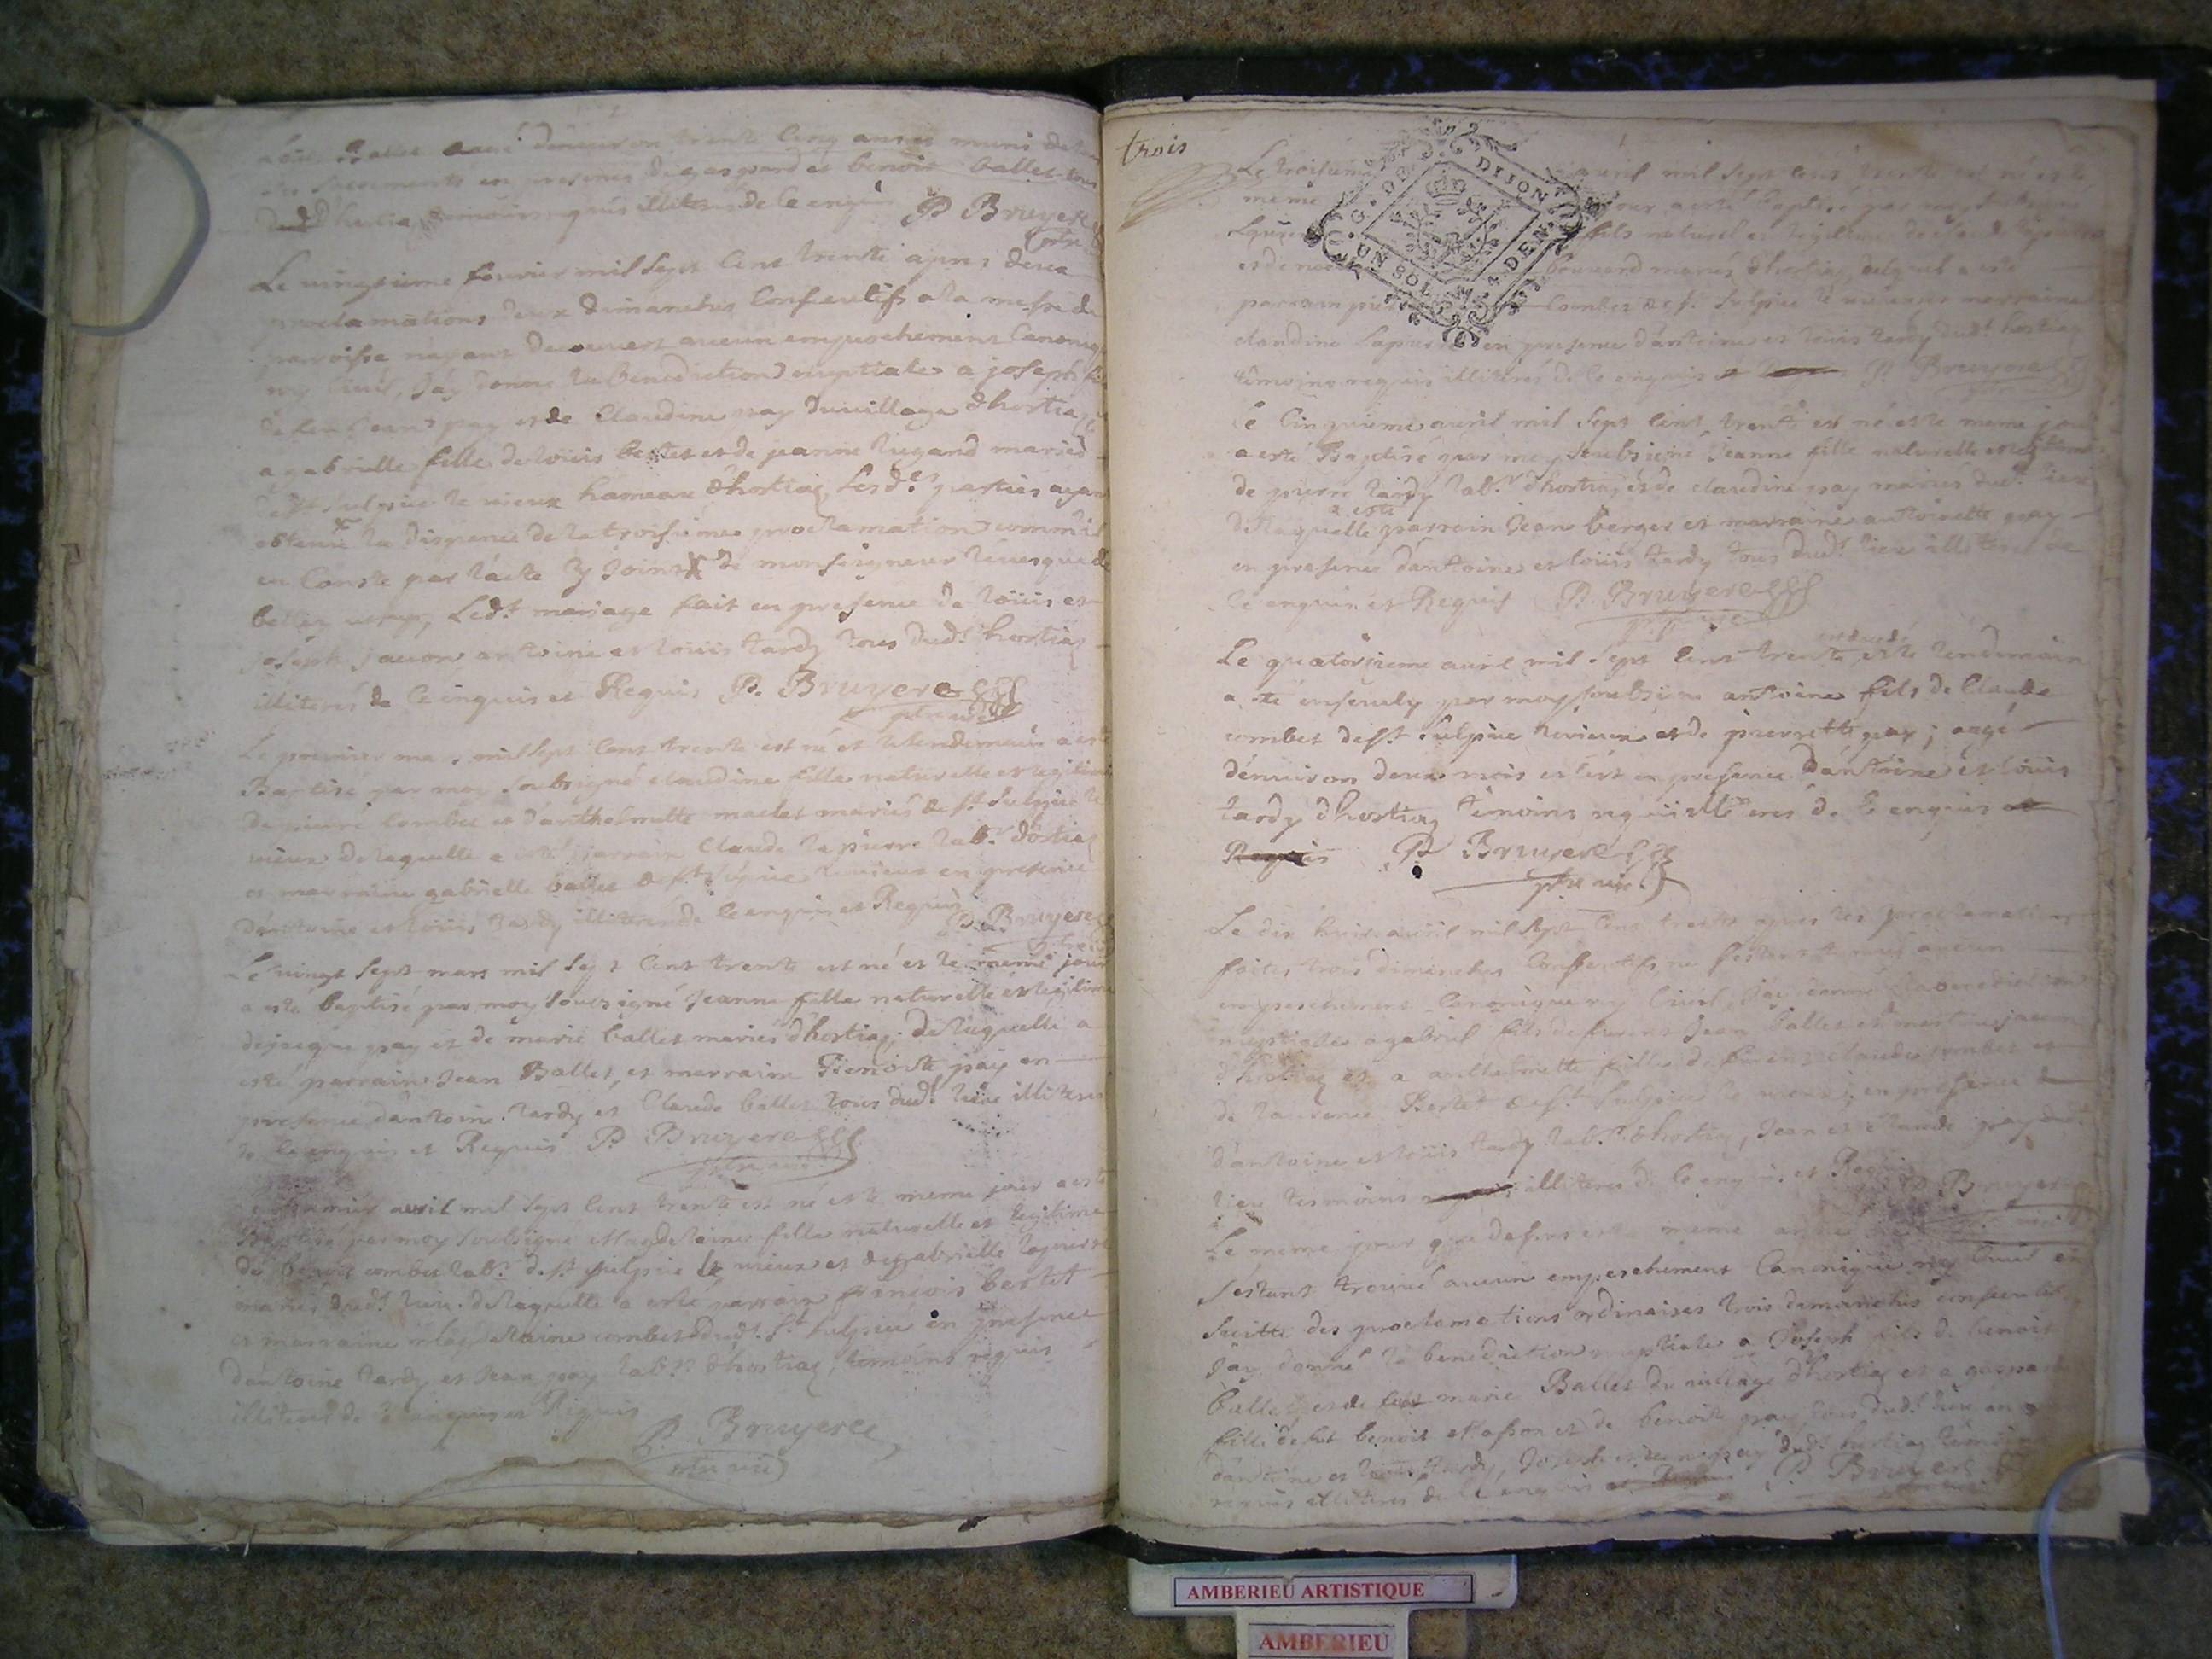 Ballet aagé denuiron trente cinq ans et muni de
sacrements en presence de gaspard et benoit ballet tous
dud.t hostiaz temoins requis illiteres de ce enquis P. Bruyere
Le vingtieme feuvrier mil sept cent trente apres deux
proclamations deux dimanches consecutifs a la messe de
parroisse n'ayant decouvert aucun empeschement canonique
ny civil, j'ay donné la benediction nuptiale a joseph fils
de feu jean pay et de Claudine pay du village d'hostiaz
a gabrielle fille de loüis bertet et de jeanne lugand mariés
de st Sulpice le vieux hameau d'hostiaz, lesd.es parties ayant
obtenu la dispence de la troisieme proclamation comm'il
en conste par l'acte cy joint de monseigneur l'evesque de
belley led.t mariage fait en presence de loüis et
joseph jauon antoine et loüis tardy tous dud.t hostiaz
illiterés de ce enquis et Requis P. Bruyere
ptre vic
Le premier mars mil sept cent trente est né et le lendemain a esté
Baptisé par moy soubsigné claudine fille naturelle et legitime
de pierre combet et d'anthelmette maclet mariés de st Sulpice le
vieux de laquelle a esté parrain Claude lapierre lab.r d'ostiaz
et marraine gabrielle ballet de st Sulpice le vieux en presence
d'antoine et loüis tardy illiterés de ce enquis et Requis
P. Bruyere
Le vingt sept mars mil sept cent trente est né et le meme jour
a esté baptisé par moy soubsigné Jeanne fille naturelle et legitime
de jacque pay et de marie ballet mariés d'hostiaz, de laquelle a
esté parrain Jean Ballet, et marraine Benoite pay en
presence d'antoine tardy et Claude ballet tous dud.t lieu illiteres
de ce enquis et Requis P. Bruyere
ptre vic
premier avril mil sept cent trente est né et le meme jour a esté
Baptisé par moy soubsigné Magdelaine fille naturelle et legitime
de benoit combet lab.r de st Sulpice le vieux et de gabrielle lapierre
mariés dud.t lieu. de laquelle a esté parrain françois bertet
et marraine magdelaine combet dud.t St Sulpice en presence
d'antoine tardy et Jean pay lab.rs d'hostiaz, temoins requis
illiteres de ce enquis et Requis
P. Bruyere
ptre vic
trois
DIJON
UN SOL 4 DEN
Le troisieme avril mil sept cent trente est né et le
meme jour a esté baptisé par moy
fils naturel et legitime de
et de bouuard mariés d'hostiaz, duquel a esté
parrain combet de st Sulpice le vieux et marraine
claudine lapierre en presence d'antoine et loüis tardy dud.t hostiaz
temoins requis illiterés de ce enquis P. Bruyere
Le cinquieme avril mil sept cent trente est né et le meme jour
a esté Baptisé par moy soubsigné Jeanne fille naturelle et legitime
de pierre tardy lab.r d'hostiaz et de claudine pay mariés dud.t lieu
de laquelle a esté parrain jean berger et marraine antoinette pay
en presence d'antoine et loüis tardy tous dud.t lieu illiteres de
ce enquis et Requis P. Bruyere
ptre vic
Le quatorzieme avril mil sept cent trente est decedé et le lendemain
a esté enseuely par moy soubsigné antoine fils de Claude
combet de st Sulpice le vieux et de pierrette pay; aagé
denuiron deux mois en presence d'antoine et loüis
tardy d'hostiaz temoins requis illiteres de ce enquis et
Requis P. Bruyere
ptre vic
Le dix huit avril mil sept cent trente apres les proclamations
faites trois dimanches consecutifs ne s'estant trouvé aucun
empeschement canonique ny civil, j'ay donné la benediction
nuptiale a gabriel fils de Jean ballet et jauon
d'hostiaz et a anthelmette fille de claude combet et
de laurence Bertet de st Sulpice le vieux; en presence
d'antoine et loüis tardy lab.rs d'hostiaz, Jean et Claude pay dud.t
lieu tesmoins illiteres de ce enquis et Requis P. Bruyere
Le meme jour que dessus et la meme année ne
s'estant trouvé aucun empeschement canonique ny civil en
suitte des proclamations ordinaires trois dimanches consecutifs
j'ay donné la benediction nuptiale a Joseph fils de benoit
ballet et de marie Ballet du village d'hostiaz et a gasparde
fille de fut benoit et de benoite pay tous dud.t lieu en presence
d'antoine et loüis tardy, Joseph pay dud.t hostiaz temoins
requis illiteres de ce enquis P. Bruyere
AMBERIEU ARTISTIQUE
AMBERIEU